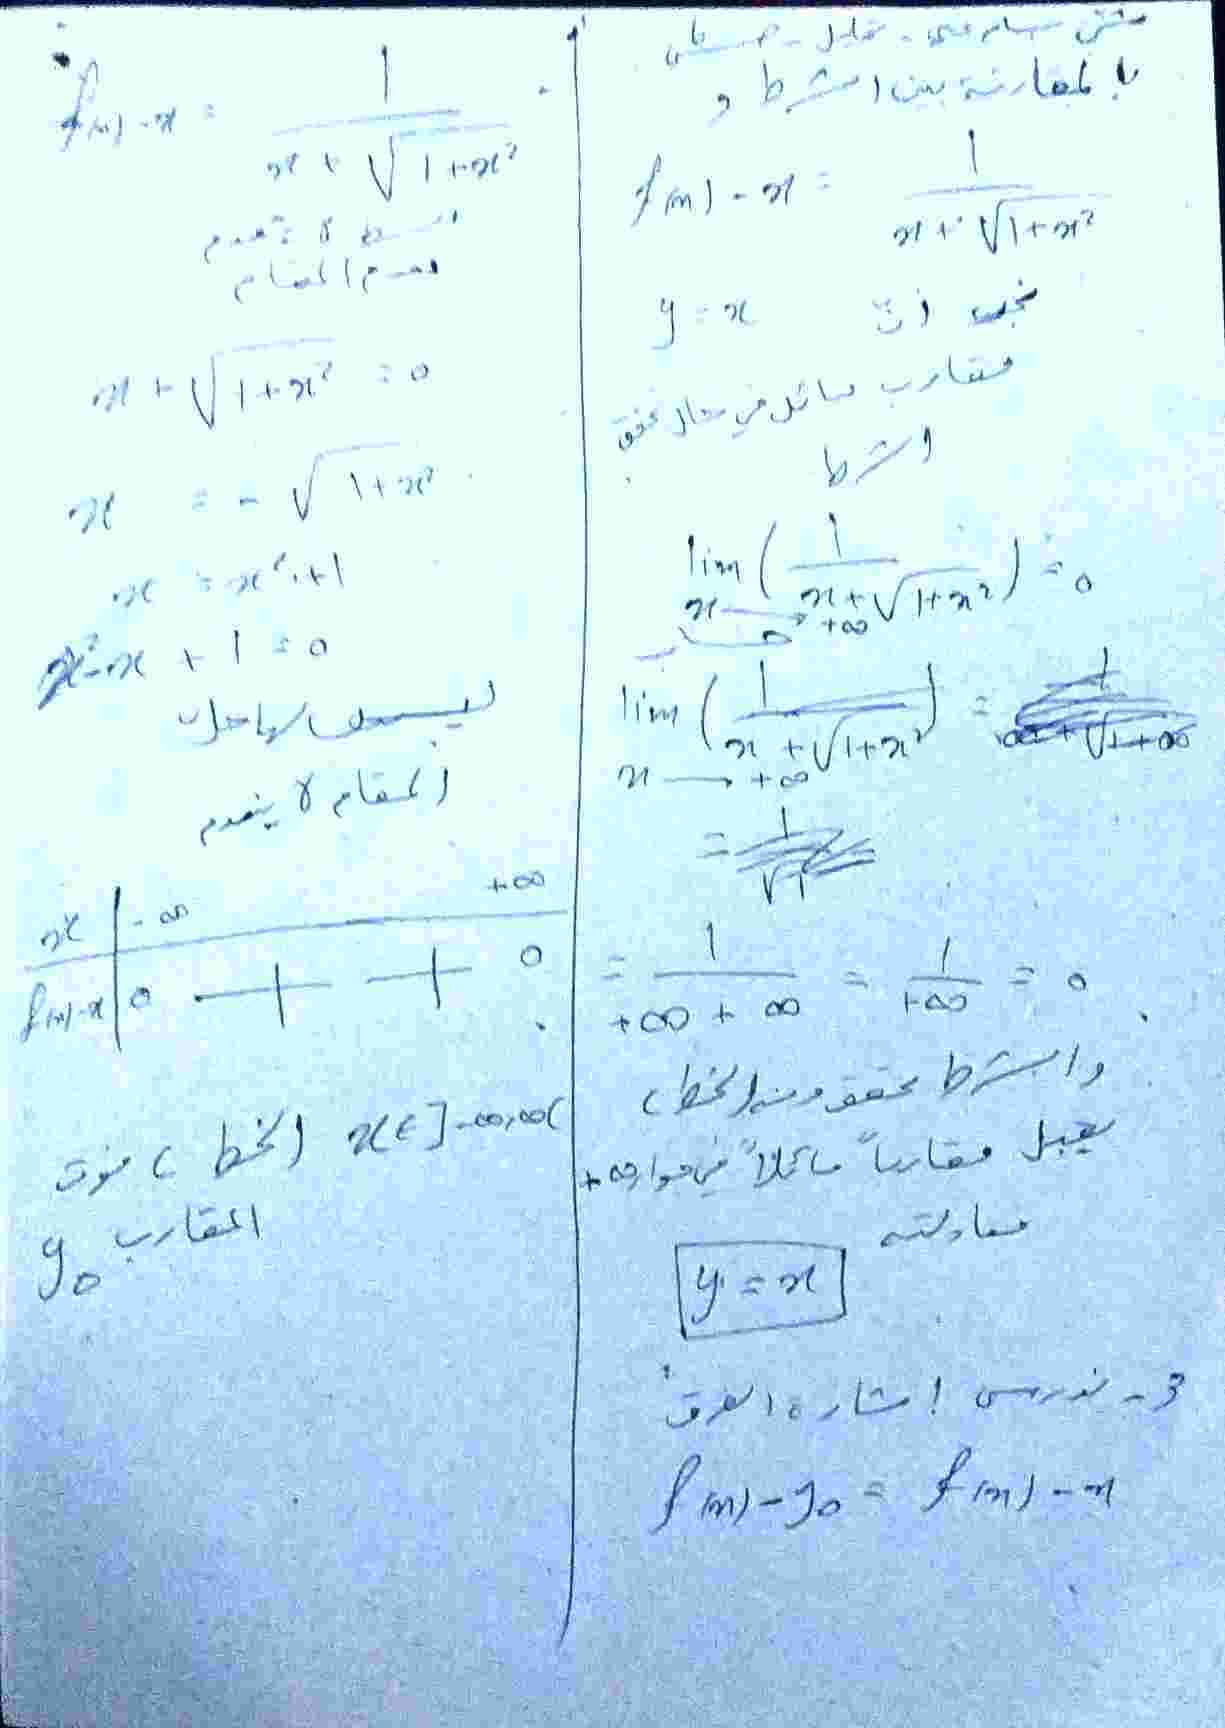 بالمقارنة بين الشرط و
f(x) - x = 1 / (x + √(1+x²))
نجد أن y = x
مقارب مائل في حال تحقق
الشرط
lim x→+∞ (1 / (x + √(1+x²))) = 0
حساب
lim x→+∞ (1 / (x + √(1+x²))) =
= 1 / (+∞ + ∞) = 1 / +∞ = 0
والشرط محقق ومنه (الخط C)
يقبل مقارباً مائلاً في جوار +∞
معادلته
y = x
3 - ندرس إشارة الفرق
f(x) - y₀ = f(x) - x
f(x) - x = 1 / (x + √(1+x²))
البسط لا ينعدم
نعدم المقام
x + √(1+x²) = 0
x = -√(1+x²)
x = x² + 1
x² - x + 1 = 0
ليس لها حل
المقام لا ينعدم
x | -∞ +∞
f(x)-x | 0 + + 0
x ∈ ]-∞,∞( (الخط C) فوق
المقارب y₀